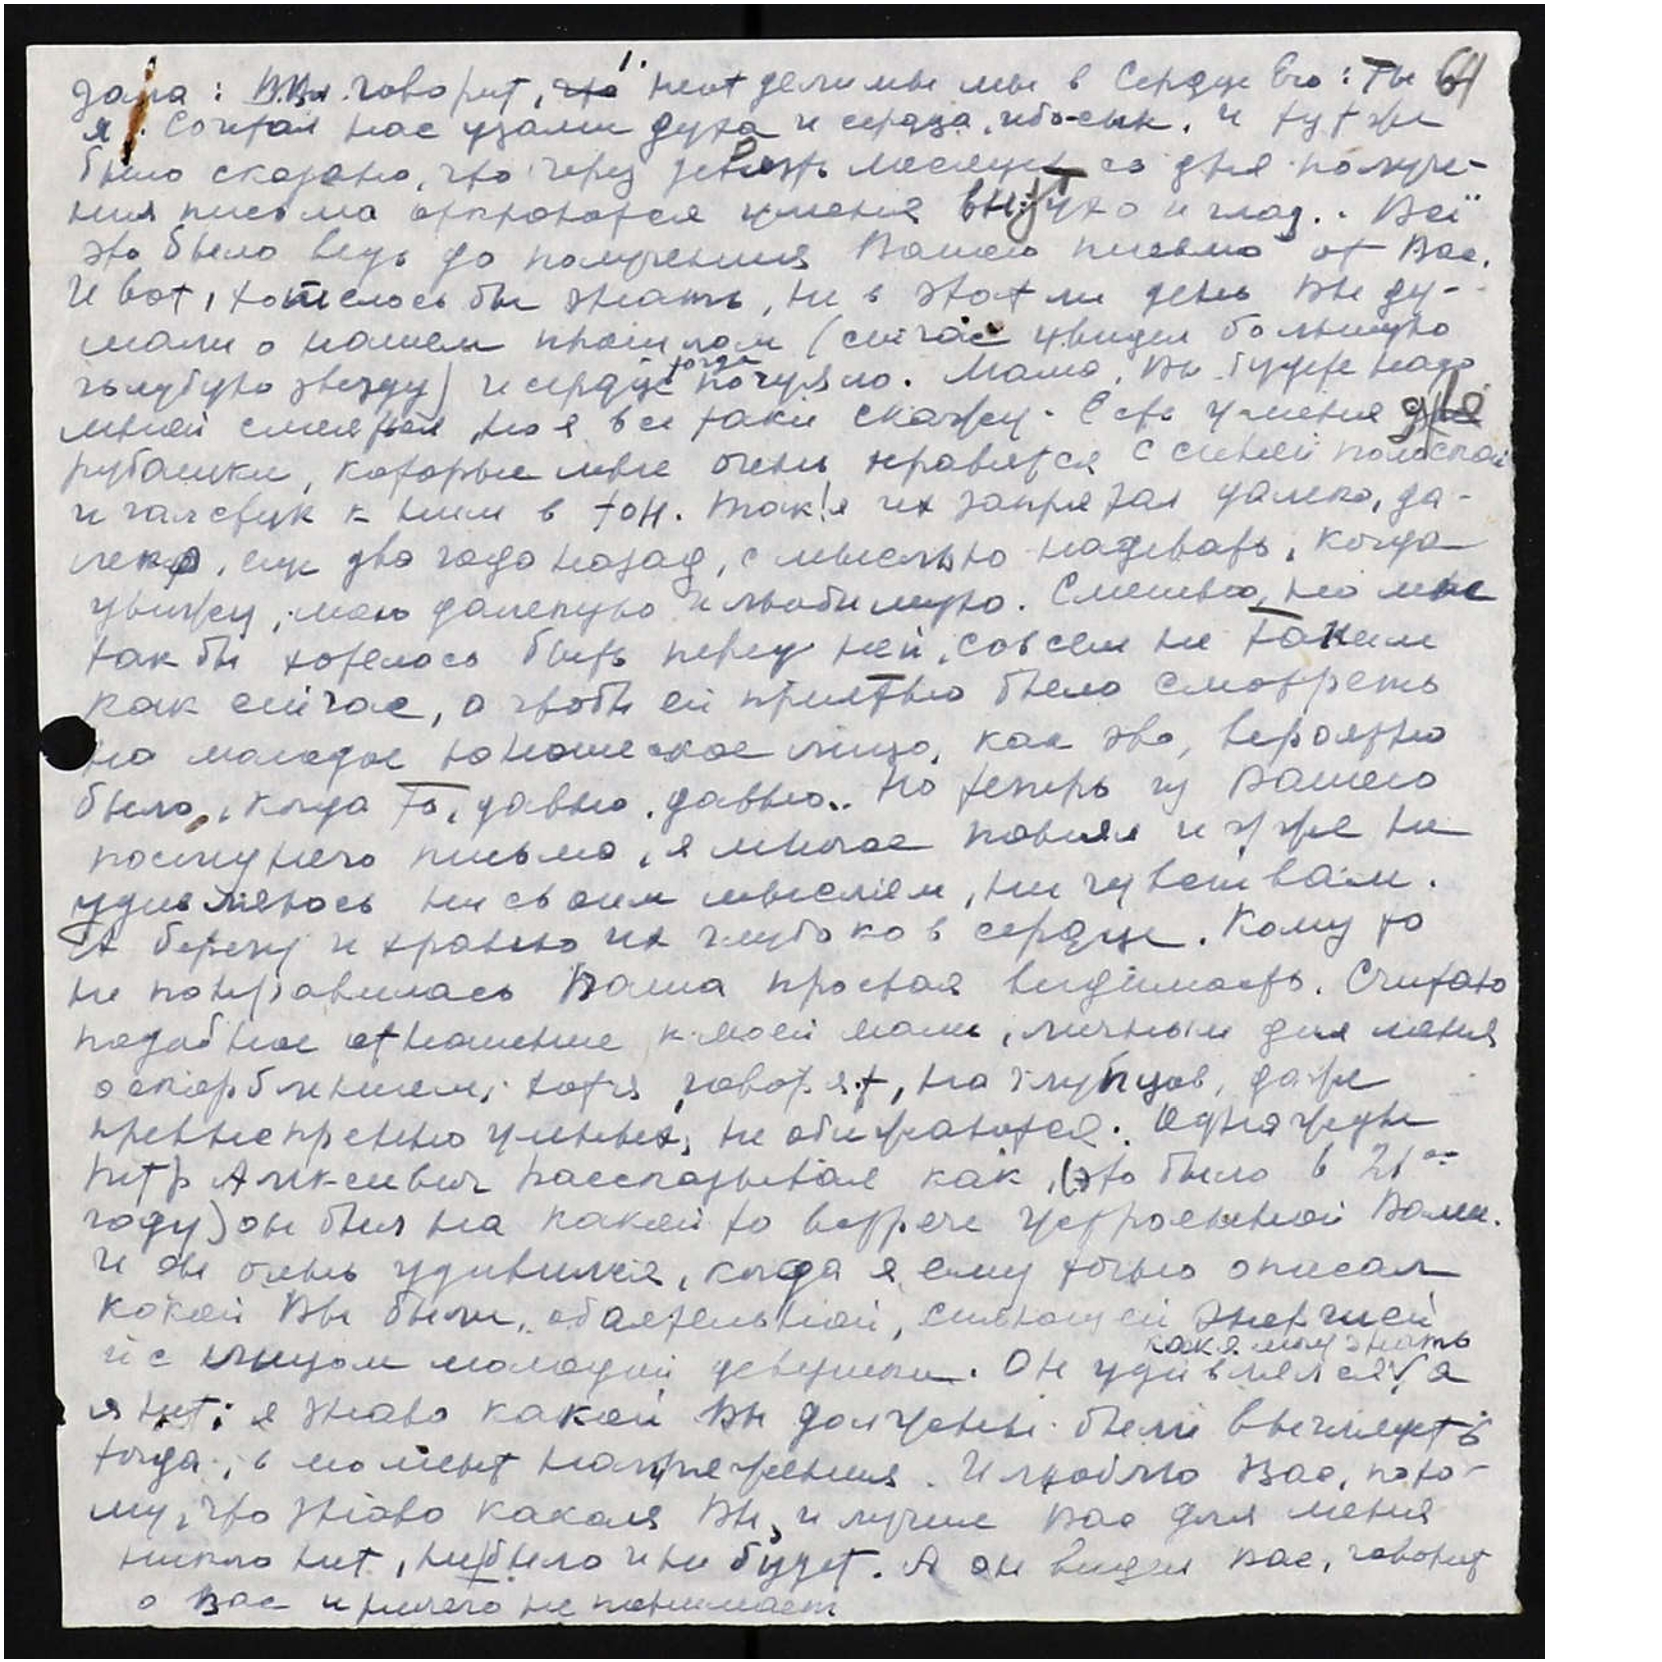 зала: Вл. говорит, что неотделимы мы в Сердце Его: ты и 64
я. Сочетал нас узами духа и сердца, ибо-сын. И тут же
было сказано, что через девять месяцев со дня получе-
ния письма откроются у меня внут. ухо и глаз.. Всё
это было ведь до получения Вашего письма от Вас.
И вот, хотелось бы знать, не в этот ли день Вы ду-
мали о нашем прошлом (сейчас увидел большую
голубую звезду) и сердце тогда почуяло. Мама, Вы будете надо
мной смеяться, но я все таки скажу. Есть у меня две
рубашки, которые мне очень нравятся с синей полоской
и галстук к ним в тон. Так я их запрятал далеко, да-
леко, еще два года назад, с мыслью надевать, когда
увижу, мою далекую и любимую. Смешно, но мне
так бы хотелось быть перед ней, совсем не таким
как сейчас, а чтобы ей приятно было смотреть
на молодое юношеское лицо, как это, вероятно
было, когда то, давно, давно.. Но теперь из Вашего
последнего письма, я многое понял и уже не
удивляюсь ни своим мыслям, ни чувствам.
А берегу и храню их глубоко в сердце. Кому то
не понравилась Ваша простая видимость. Считаю
подобное отношение к моей маме, личным для меня
оскорблением, хотя, говорят, на глупцов, даже
преизспренно умных, не обижаются. Однажды
Петр Алексеевич рассказывал как, (это было в 21ом
году) он был на какой то встрече устроенной Вами.
И он очень удивился, когда я ему точно описал
какой Вы были, обаятельной, сияющей энергией
и с лицом молодой девушки. Он удивлялся как я могу знать, а
я нет: я знаю какой Вы должны были выглядеть
тогда, в момент напряжения. И люблю Вас, пото-
му, что знаю какая Вы, и лучше Вас для меня
никого нет, не было и не будет. А он видел Вас, говорит
о Вас и ничего не понимает